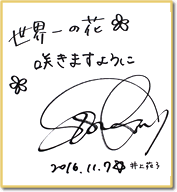 世界一の花
咲きますように
2016.11.7
井上花子